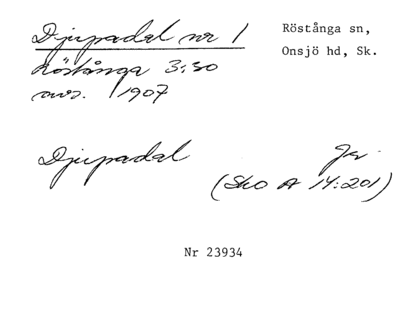 Djupadal nr 1
Röstånga sn,
Onsjö hd, Sk.
Röstånga 3:30
avs. 1907
Djupadal
(Sko A 14:201)
Nr 23934